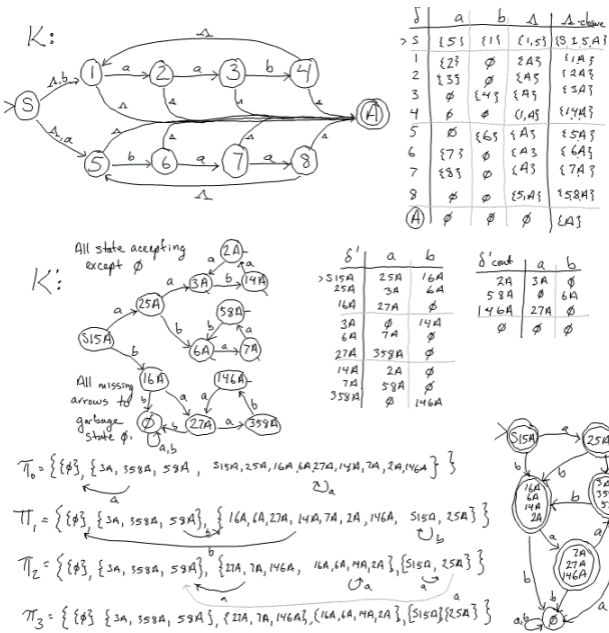 K:
Λ
Λ,b
1
a
2
a
3
b
4
S
Λ
Λ
Λ
Λ
A
Λ,a
Λ
Λ
Λ
Λ
5
b
6
a
7
a
8
Λ
δ a b Λ Λ-closure
>S {5} {1} {1,5} {S,1,5,A}
1 {2} ∅ {A} {1A}
2 {3} ∅ {A} {2A}
3 ∅ {4} {A} {3A}
4 ∅ ∅ {1,A} {14A}
5 ∅ {6} {A} {5A}
6 {7} ∅ {A} {6A}
7 {8} ∅ {A} {7A}
8 ∅ ∅ {5,A} {58A}
A ∅ ∅ ∅ {A}
K':
All state accepting
except ∅
2A
a
a
3A
b
14A
a
25A
58A
a
b
b
a
S15A
6A
a
7A
b
16A
146A
All missing
arrows to
garbage
state ∅.
b
a
a
b
∅
b
27A
a
358A
a,b
δ' a b
>S15A 25A 16A
25A 3A 6A
16A 27A ∅
3A ∅ 14A
6A 7A ∅
27A 358A ∅
14A 2A ∅
7A 58A ∅
358A ∅ 146A
δ' cont a b
2A 3A ∅
58A ∅ 6A
146A 27A ∅
∅ ∅ ∅
Π₀ = {{∅}, {3A, 358A, 58A, S15A, 25A, 16A, 6A, 27A, 14A, 7A, 2A, 146A}}
a
a
Π₁ = {{∅}, {3A, 358A, 58A}, {16A, 6A, 27A, 14A, 7A, 2A, 146A, S15A, 25A}}
b
b
Π₂ = {{∅}, {3A, 358A, 58A}, {27A, 7A, 146A, 16A, 6A, 14A, 2A}, {S15A, 25A}}
a
a
a
a
Π₃ = {{∅} {3A, 358A, 58A}, {27A, 7A, 146A}, {16A, 6A, 14A, 2A}, {S15A} {25A}}
S15A
a
25A
b
b
a
16A
6A
14A
2A
b
a
a
7A
27A
146A
b
b
a
a,b
∅